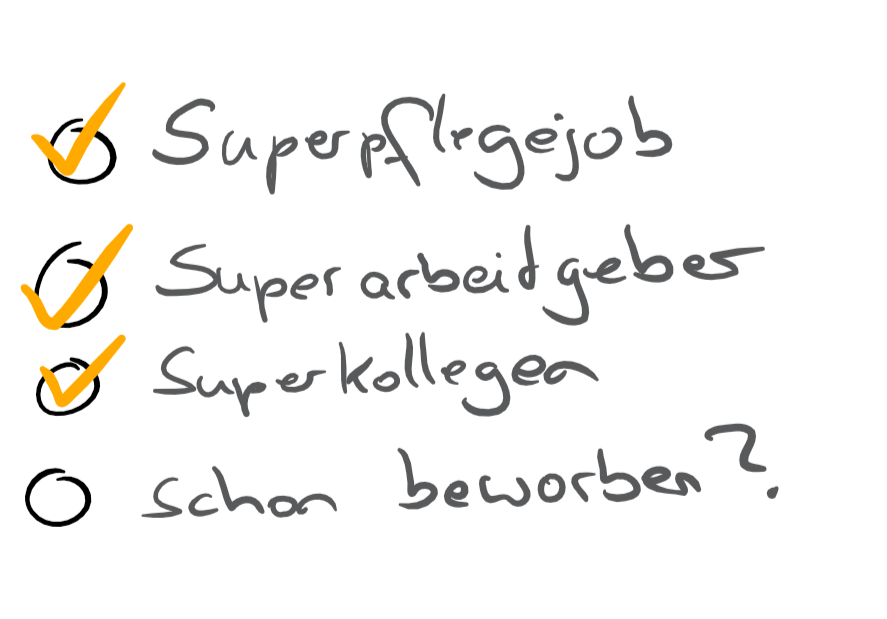 Superpflegejob
Superarbeitgeber
Superkollegen
schon beworben?